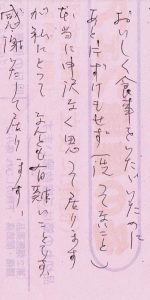 おいしく食事をいただいたのに
あとかたずけもせず（洗ってないこと）
本当に申訳なく思って居ります
が私にとってなんとも有難いことです。
感謝いたして居ります。